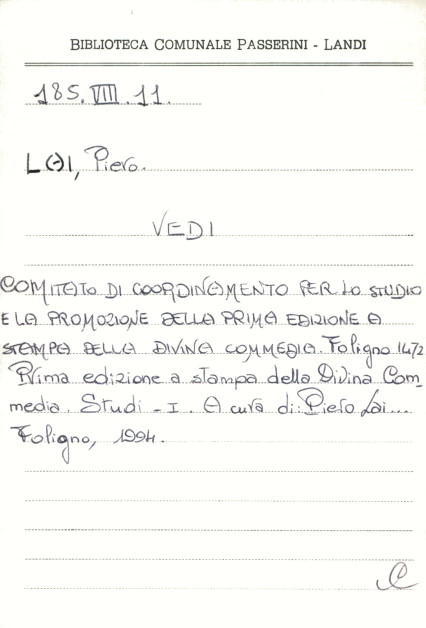 BIBLIOTECA COMUNALE PASSERINI - LANDI
185.VIII.11.
LAI, Piero.
VEDI
COMITATO DI COORDINAMENTO PER LO STUDIO
E LA PROMOZIONE DELLA PRIMA EDIZIONE A
STAMPA DELLA DIVINA COMMEDIA. Foligno 1472
Prima edizione a stampa della Divina Com_
media. Studi - I. A cura di: Piero Lai...
Foligno, 1994.